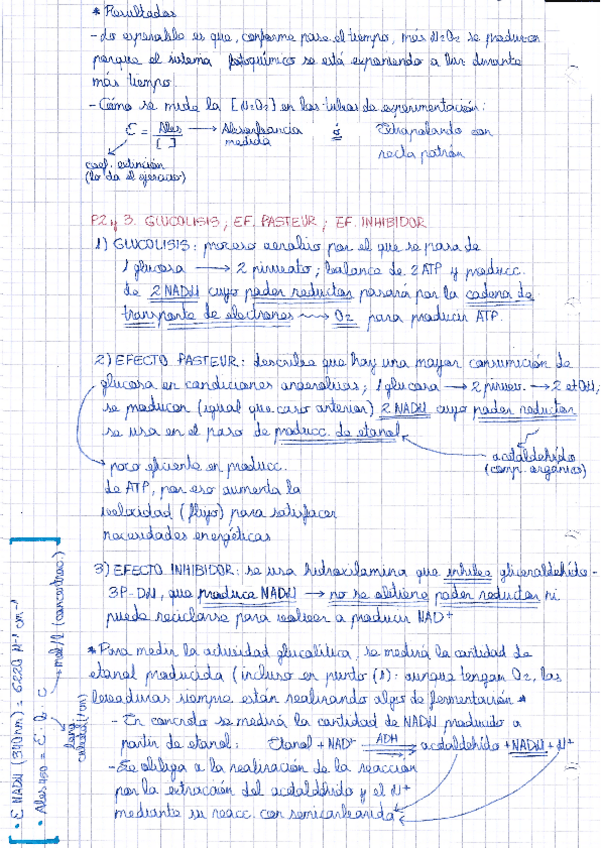 * Resultados
- Lo esperable es que, conforme pasa el tiempo, más H2O2 se produzca
porque el sistema fotoquímico se está exponiendo a luz durante
más tiempo.
- Cómo se mide la [H2O2] en los tubos de experimentación:
ε = Abs/[ ] → Absorbancia medida ó Extrapolando con recta patrón
coef. extinción
(lo da el ejercicio)
P2 y 3. GLUCOLISIS; EF. PASTEUR; EF. INHIBIDOR
1) GLUCOLISIS: proceso aerobio por el que se pasa de
1 glucosa → 2 piruvato; balance de 2 ATP y producc.
de 2 NADH cuyo poder reductor pasará por la cadena de
transporte de electrones ⇝ O2 para producir ATP.
2) EFECTO PASTEUR: describe que hay una mayor consumición de
glucosa en condiciones anaerobias; 1 glucosa → 2 piruv. → 2 etOH;
se producen (igual que caso anterior) 2 NADH cuyo poder reductor
se usa en el paso de producc. de etanol
acetaldehído
(comp. orgánico)
poco eficiente en producc.
de ATP, por eso aumenta la
velocidad (flujo) para satisfacer
necesidades energéticas
3) EFECTO INHIBIDOR: se usa hidroxilamina que inhibe gliceraldehído-
3P-DH, que produce NADH → no se obtiene poder reductor ni
puede reciclarse para volver a producir NAD+
* Para medir la actividad glucolítica, se medirá la cantidad de
etanol producida (incluso en punto (1): aunque tengan O2, las
levaduras siempre están realizando algo de fermentación *
- En concreto se medirá la cantidad de NADH producido a
partir de etanol: Etanol + NAD+ ⇌ ADH acetaldehído + NADH + H+
- Se obliga a la realización de la reacción
por la extracción del acetaldehído y el H+
mediante su reacc. con semicarbazida
· ε NADH (340nm) = 6220 M-1 cm-1
· Abs = ε · l · c
mol/l (concentrac.)
cubeta (1 cm)